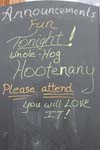 Announcements
Fun
Tonight!
Whole-Hog
Hootenany
Please attend
you will LOVE
IT!